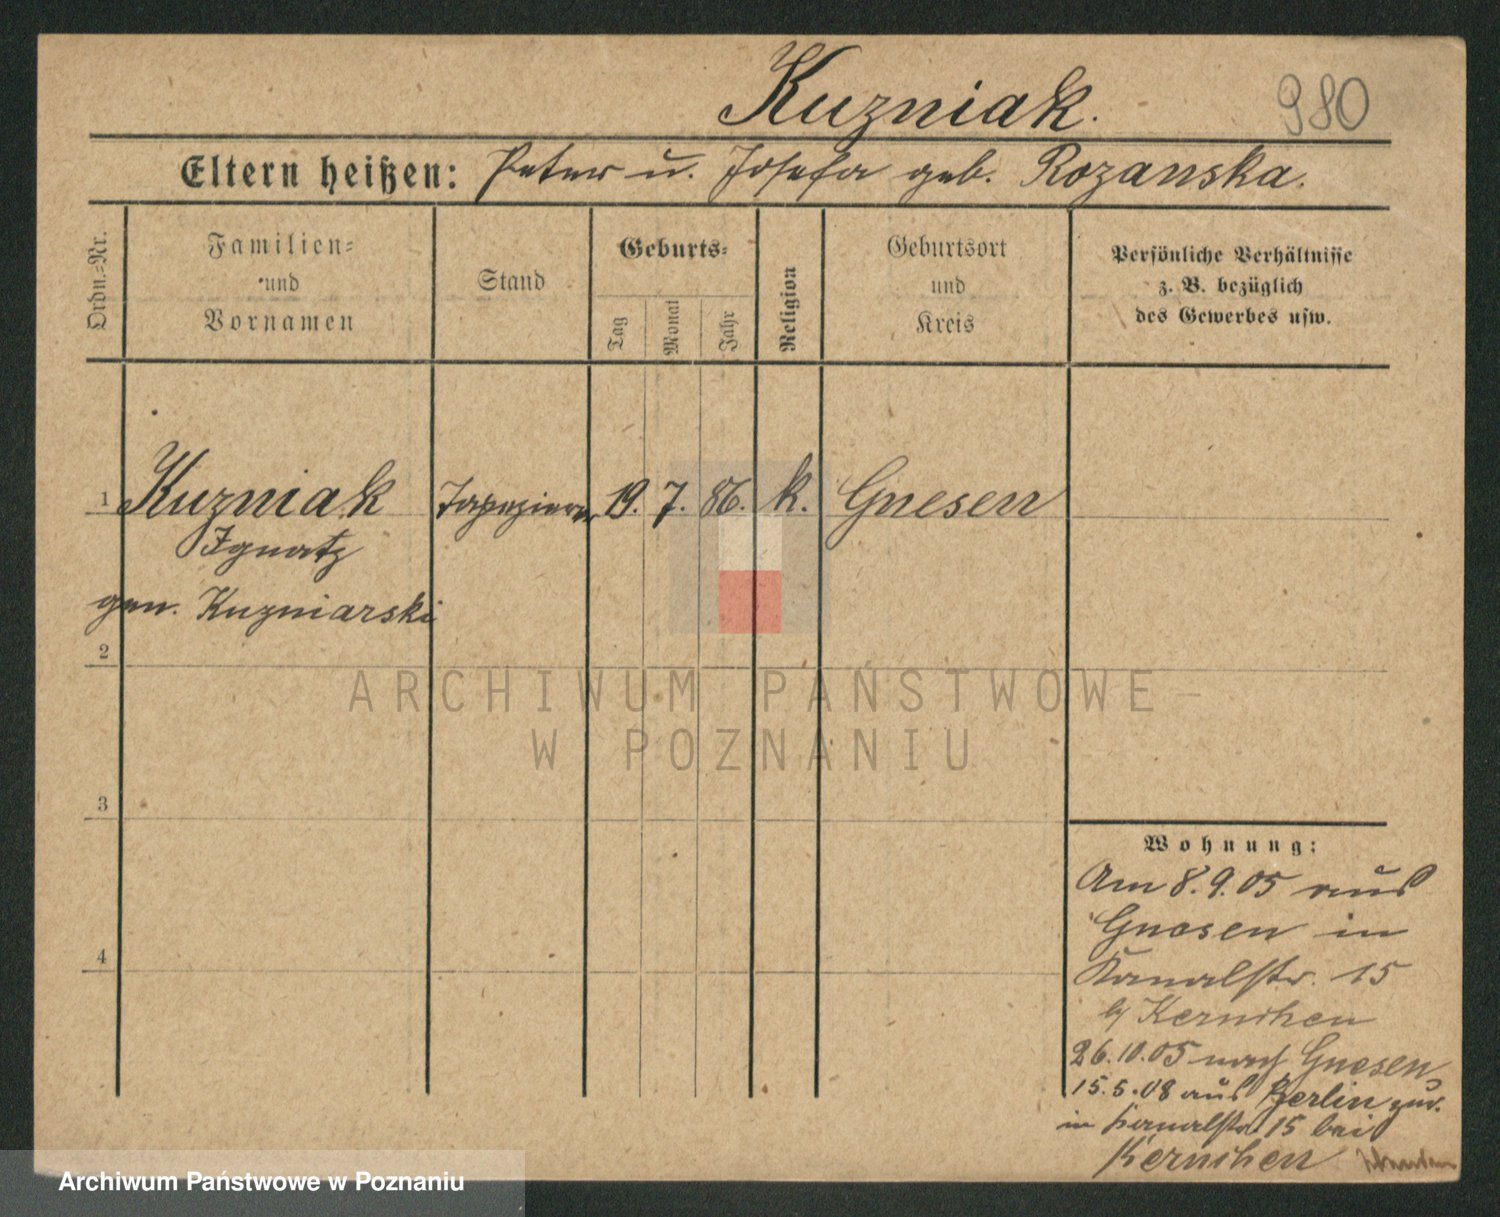 Kuzniak.
980
Eltern heißen: Peter u. Josefa geb. Rozanska.
Ordn.=Nr.
Familien=
und
Vornamen
Stand
Geburts=
Tag
Monat
Jahr
Religion
Geburtsort
und
Kreis
Persönliche Verhältnisse
z. B. bezüglich
des Gewerbes usw.
1 Kuzniak Tapezierer 19. 7. 86. k. Gnesen
Ignatz
gen. Kuzniarski
2
3
4
ARCHIWUM PAŃSTWOWE
W POZNANIU
Wohnung:
Am 8.9.05 aus
Gnesen in
Kanalstr. 15
b/ Kernchen
26.10.05 nach Gnesen
15.5.08 aus Berlin zur.
in Kanalstr 15 bei
Kernchen
Archiwum Państwowe w Poznaniu